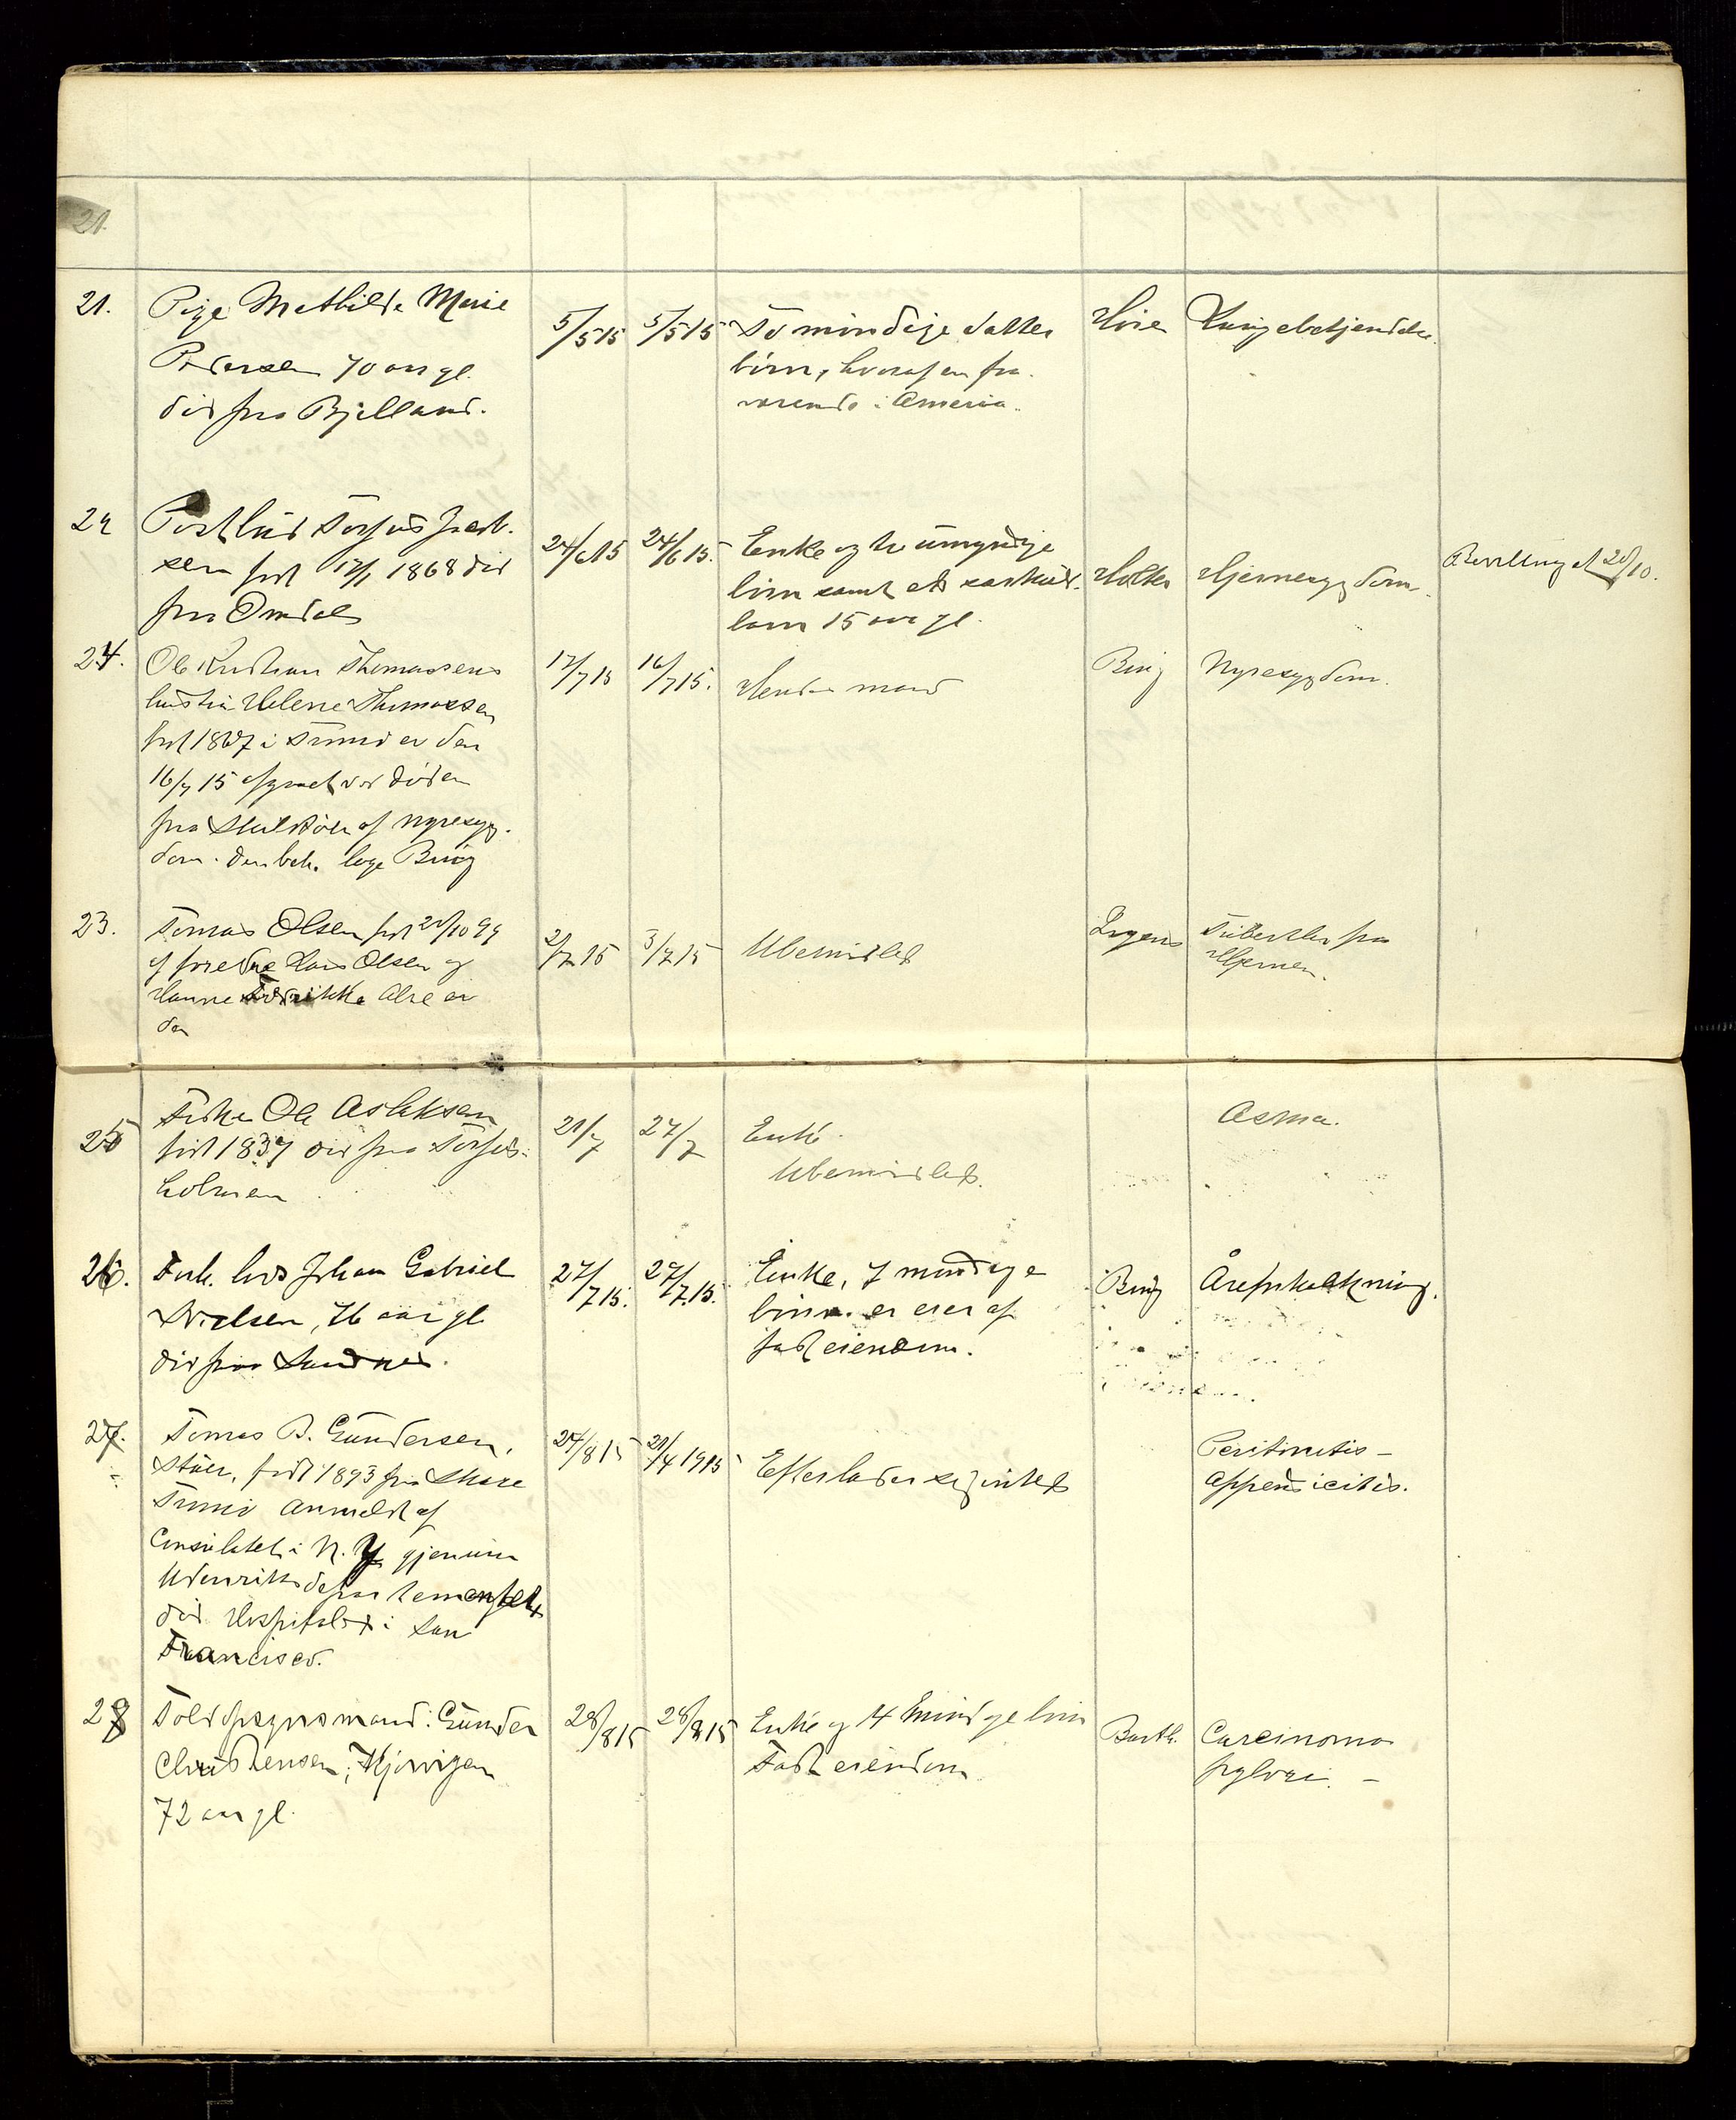 21.
21. Pige Mathilde Marie 5/5 15 5/5 15 To myndige datter Høie
Pedersen 70 aar gl. børn, hvoraf en fra
død fra Bjelland. værende i America.
22 Postbud Torjus Jacob. 24/6 15 24/6 15. Enke og to umyndige Holte Hjernesygdom. Bevilling af 28/10.
sen født 12/1 1868 død børn samt et særkuld.
fra Omdal barn 15 aar gl.
24. Ole Kristian Thomassens 17/7 15 16/7 15. Hendes mand Bing Nyresygdom.
hustru Helene Thomassen
født 1867 i Tromø er den
16/7 15 afgaaet ved døden
fra af nyresyg.
dom. den beh. læge Bing
23. Tomas Olsen født 10 99 2/7 15 3/7 15 Ubemidlet Tuberkler paa
af forældre Hans Olsen og Hjernen.
Hanne Fredrikke Olsen
den
25 Fisker Ole Aslaksen 21/7 27/7 Enke. Asma.
født 1837 død fra Torjus- Ubemidlet.
holmen
26. Forh. lods Johan Gabriel 27/7 15. 27/7 15. Enke, 7 myndige Bing Åreforkalkning.
Nielsen, 76 aar gl. børn. er eier af
død fra Sandnes. fast eiendom.
27. Tomas B. Gundersen, 27/8 15 21/4 1915 Efterlader sig intet Peritonitis -
født 1893 fra Skare Appendicitis.
Tromø Anmeldt af
Consulatet i N.Y. gjennem
Utenriksdepartementet
død Hospitalet i San
Francisco.
28 Toldopsynsmand Gunder 28/8 15 28/8 15 Enke og 4 myndige børn Barth. Carcinoma
Christensen, Fast eiendom pylori. -
72 aar gl.